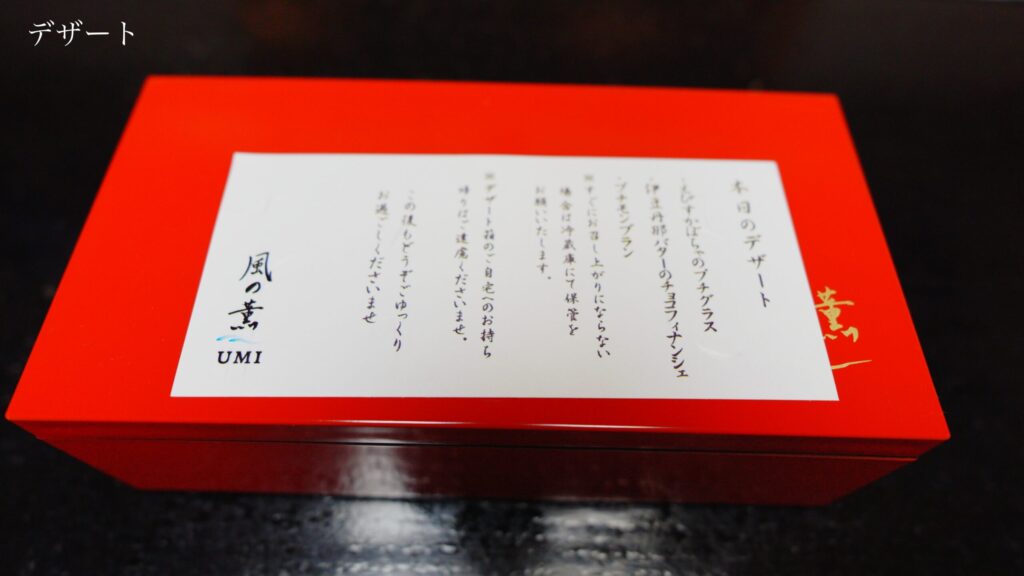 デザート
本日のデザート
・えびすかぼちゃのプチグラス
・伊豆丹那バターのチョコフィナンシェ
・プチモンブラン
※すぐにお召し上がりにならない
場合は冷蔵庫にて保管を
お願いいたします。
※デザート箱のご自宅へのお持ち
帰りはご遠慮くださいませ。
この後もどうぞごゆっくり
お過ごしくださいませ
風の薫
UMI
薫